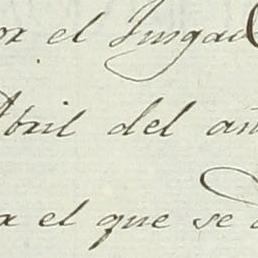 por el Juzgad
Abril del añ
a el que se